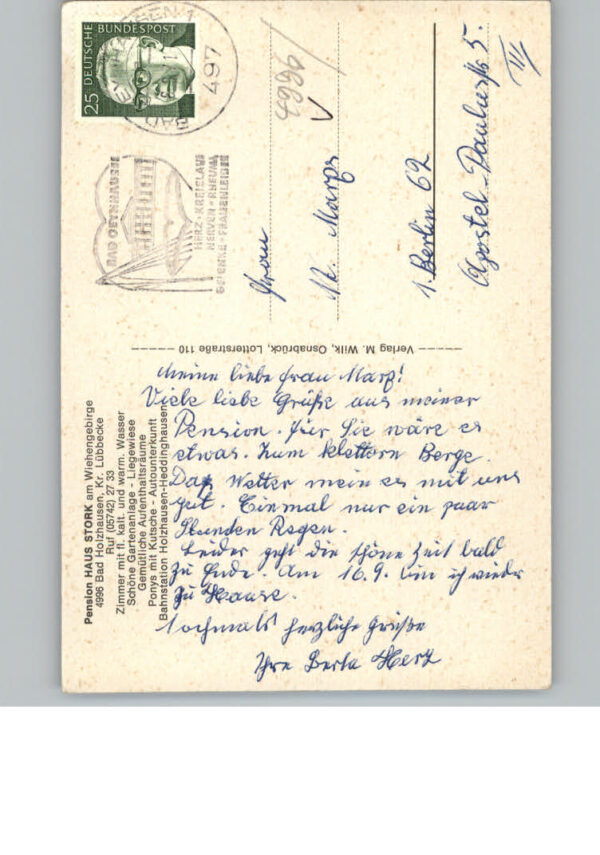 25 DEUTSCHE BUNDESPOST
BAD OEYNHAUSEN 1
497
BAD OEYNHAUSEN
HERZ-KREISLAUF
NERVEN-RHEUMA
GELENKE-FRAUENLEIDEN
4996/
Frau
M. Marx
1. Berlin 62
Apostel-Paulusstr 5.
III
Verlag M. Wilk, Osnabrück, Lotterstraße 110
Pension HAUS STORK am Wiehengebirge
4996 Bad Holzhausen, Kr. Lübbecke
Ruf (05742) 27 33
Zimmer mit fl. kalt. und warm. Wasser
Schöne Gartenanlage - Liegewiese
Gemütliche Aufenthaltsräume
Ponys mit Kutsche - Autounterkunft
Bahnstation Holzhausen-Heddinghausen
Meine liebe Frau Marx!
Viele liebe Grüße aus meiner
Pension. Für Sie wäre es
etwas. Zum klettern Berge.
Das Wetter mein es mit uns
gut. Einmal nur ein paar
Stunden Regen.
Leider geht die schöne Zeit bald
zu Ende. Am 16.9. bin ich wieder
zu Hause.
Nochmals herzliche Grüße
Ihre Berta Herz